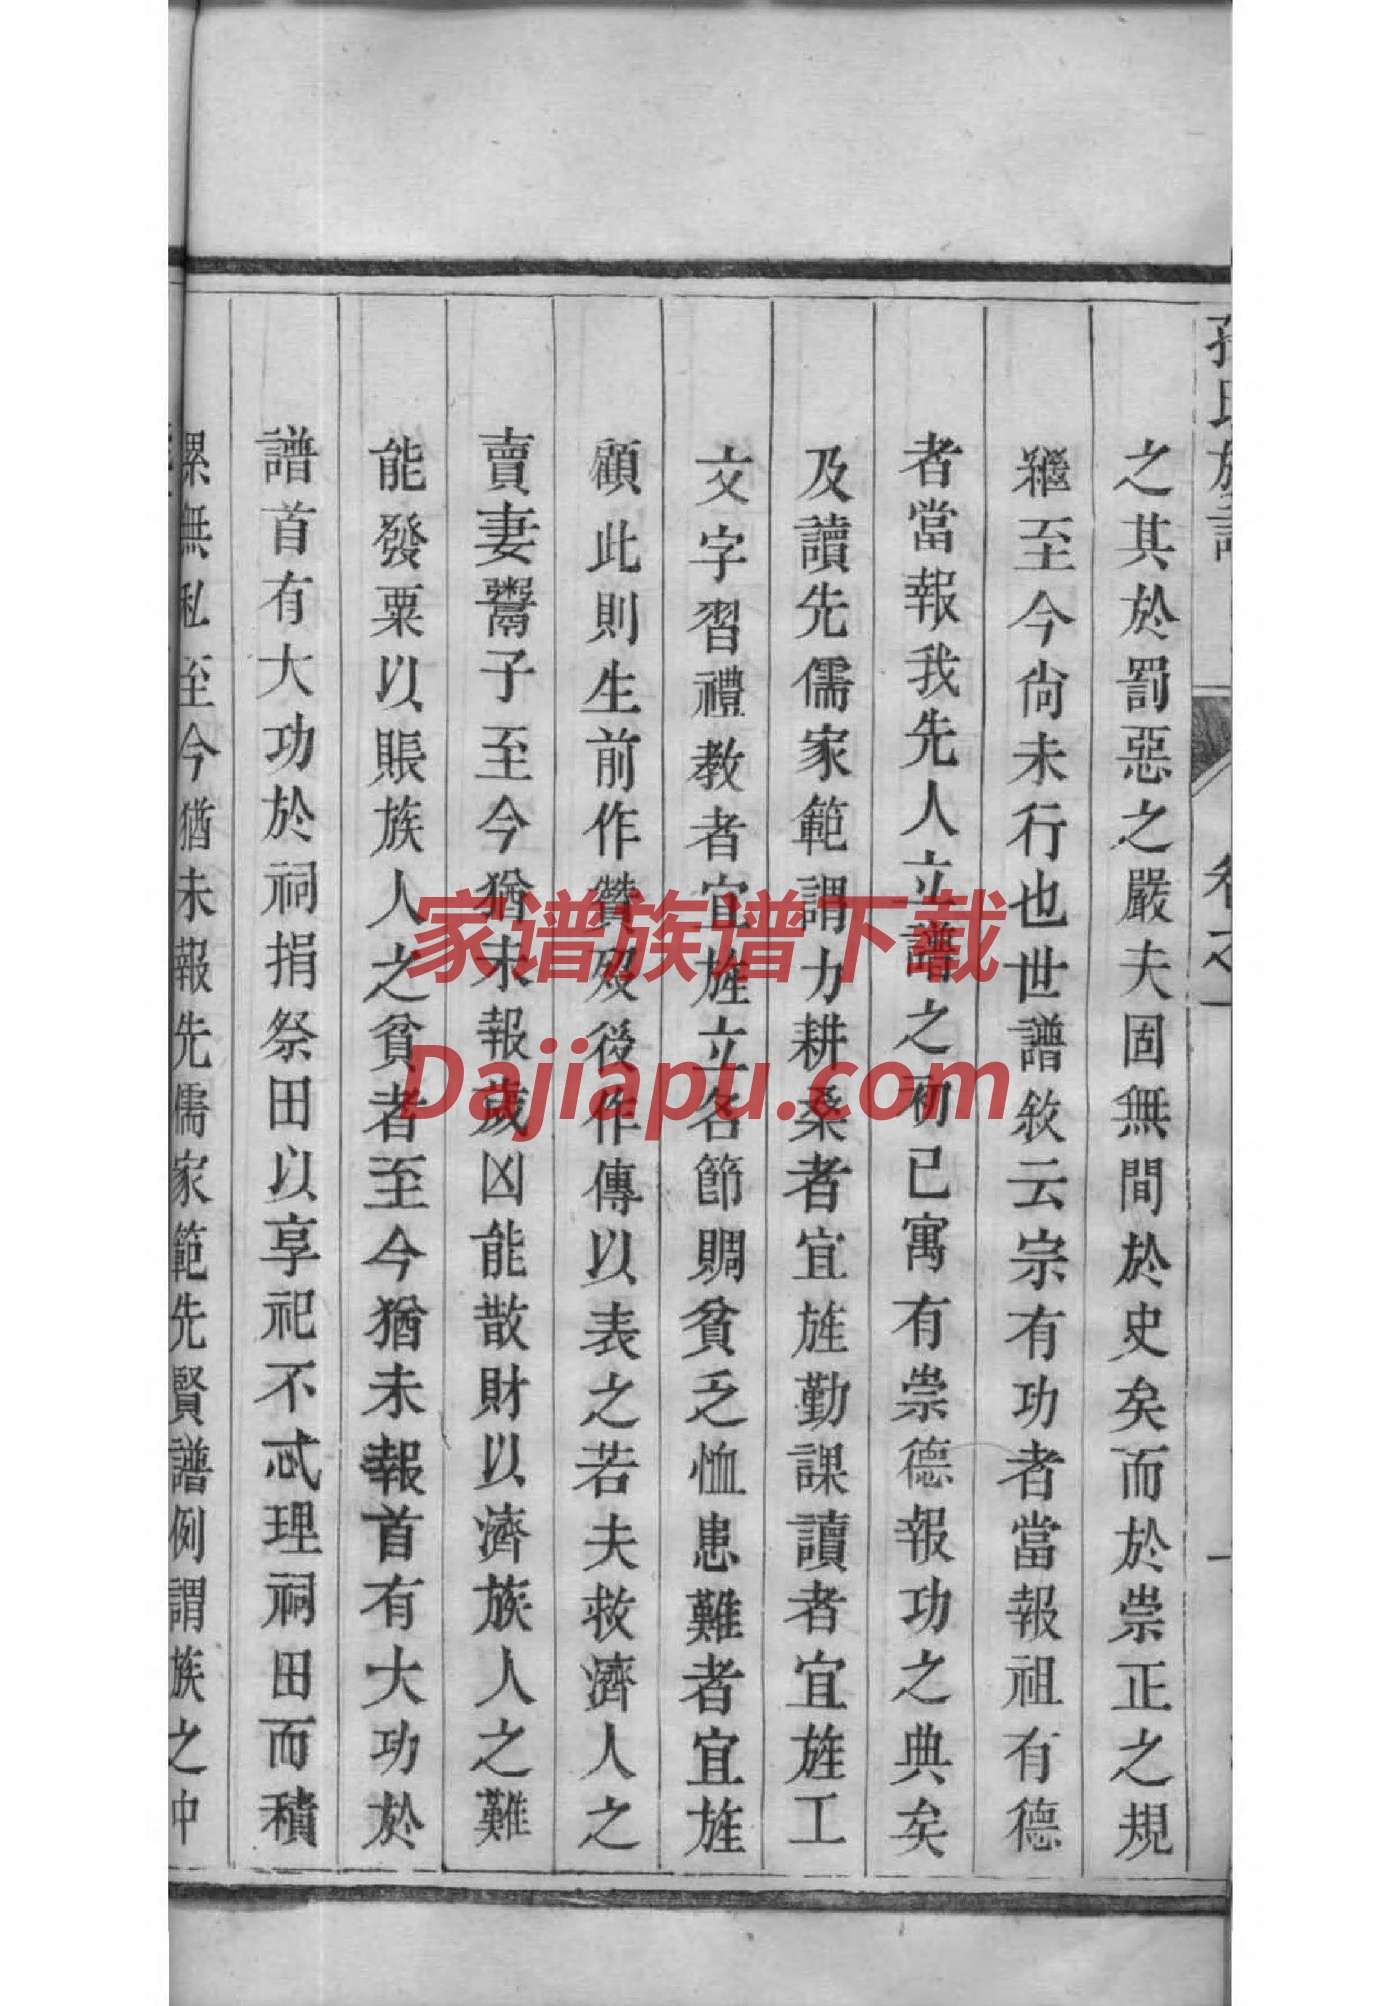 孫氏族譜 卷之一
之其於罰惡之嚴夫固無間於史矣而於崇正之規
繼至今尙未行也世譜敘云宗有功者當報祖有德
者當報我先人立譜之初已寓有崇德報功之典矣
及讀先儒家範謂力耕桑者宜旌勤課讀者宜旌工
文字習禮教者宜旌立名節賙貧乏恤患難者宜旌
顧此則生前作贊歿後作傳以表之若夫救濟人之
賣妻鬻子至今猶未報歲凶能散財以濟族人之難
能發粟以賑族人之貧者至今猶未報首有大功於
譜首有大功於祠捐祭田以享祀不忒理祠田而積
累無私至今猶未報先儒家範先賢譜例謂族之中
家谱族谱下载
Dajiapu.com